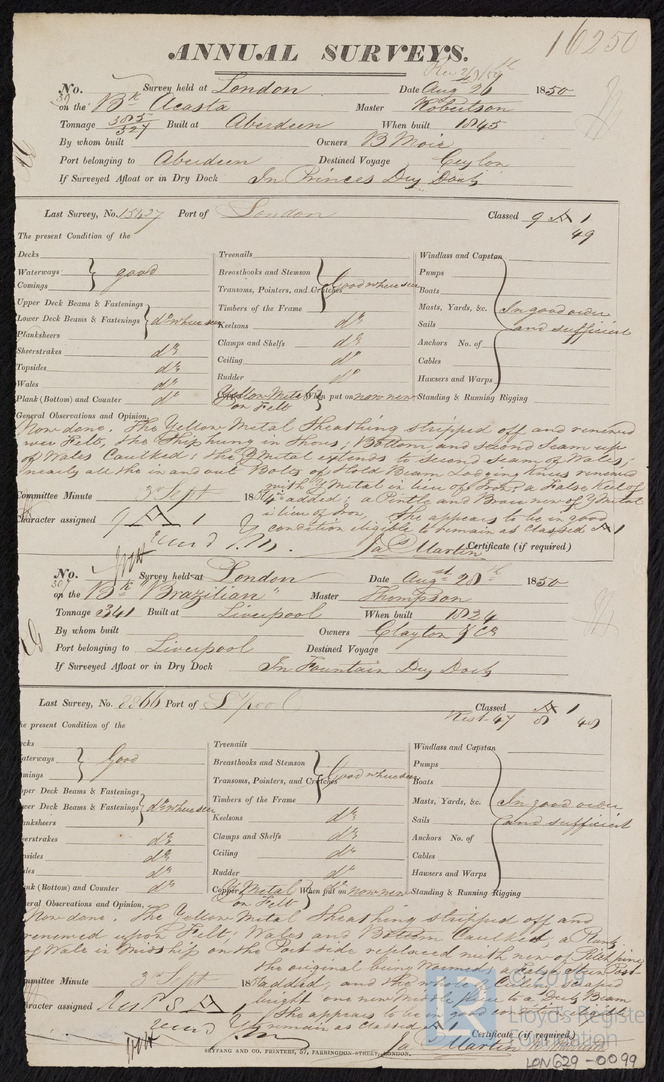 16250
ANNUAL SURVEYS.
No. Survey held at London Date Aug 26 1850
on the Bk Acasta Master Robertson
Tonnage 385/327 Built at Aberdeen When built 1845
By whom built Owners B Moir
Port belonging to Aberdeen Destined Voyage Ceylon
If Surveyed Afloat or in Dry Dock In Princes Dry Dock
Last Survey, No. 15427 Port of London Classed 9 A 1
49
The present Condition of the
Decks Treenails Windlass and Capstan
Waterways good Breasthooks and Stemson Good where seen Pumps
Comings Transoms, Pointers, and Crutches Boats
Upper Deck Beams & Fastenings Timbers of the Frame Masts, Yards, &c. In good order
Lower Deck Beams & Fastenings do where seen Keelsons do Sails and sufficient
Planksheers Clamps and Shelfs do Anchors No. of
Sheerstrakes do Ceiling do Cables
Topsides do Rudder do Hawsers and Warps
Wales do Yellow Metal on Felt When put on now new Standing & Running Rigging
Plank (Bottom) and Counter do
General Observations and Opinion,
Now done. The Yellow Metal Sheathing stripped off and renewed
over Felt, the Ship hung in Shores, Bottom and second seam up
of Wales Caulked: the Y Metal extends to second seam of Wales;
nearly all the in and out Bolts of Hold Beam Lodging Knees renewed
with Y Metal in lieu of Iron; a False Keel of
4 in added; a Pintle and Brace new of Y Metal
Committee Minute 3 Sept 18
in lieu of Iron. She appears to be in good
Character assigned 9 A 1
condition eligible to remain as Classed A 1
Jas Martin Certificate (if required)
No. Survey held at London Date Augst 28th 1850
on the Bk "Brazilian" Master Thompson
Tonnage 341 Built at Liverpool When built 1824
By whom built Owners Clayton & Co
Port belonging to Liverpool Destined Voyage
If Surveyed Afloat or in Dry Dock In Fountain Dry Dock
Last Survey, No. 8866 Port of L'pool Classed A 1
Rest. 47 8 48
The present Condition of the
Treenails Windlass and Capstan
Good Breasthooks and Stemson Good where seen Pumps
Transoms, Pointers, and Crutches Boats
Deck Beams & Fastenings Timbers of the Frame Masts, Yards, &c. In good order
Deck Beams & Fastenings do where seen Keelsons do Sails and sufficient
Clamps and Shelfs do Anchors No. of
do Ceiling do Cables
do Rudder do Hawsers and Warps
do Copper Y Metal on Felt When put on now new Standing & Running Rigging
(Bottom) and Counter do
General Observations and Opinion,
Now done. The Yellow Metal Sheathing stripped off and
renewed upon Felt; Wales and Bottom Caulked, a Plank
of Wale in Midship on the Port side replaced with new of Pitch pine
the original being Wormed, a False
Committee Minute 3 Sept 18
added, and the whole
bright one new Middle piece to a Deck Beam
Character assigned Rest 8 A 1
She appears to be in good condition
remain as classed A 1
Jas Martin Certificate (if required)
SEYFANG AND CO. PRINTERS, 57, FARRINGDON-STREET, LONDON.
© 2019
Lloyd's Register
Foundation
LON629-0099